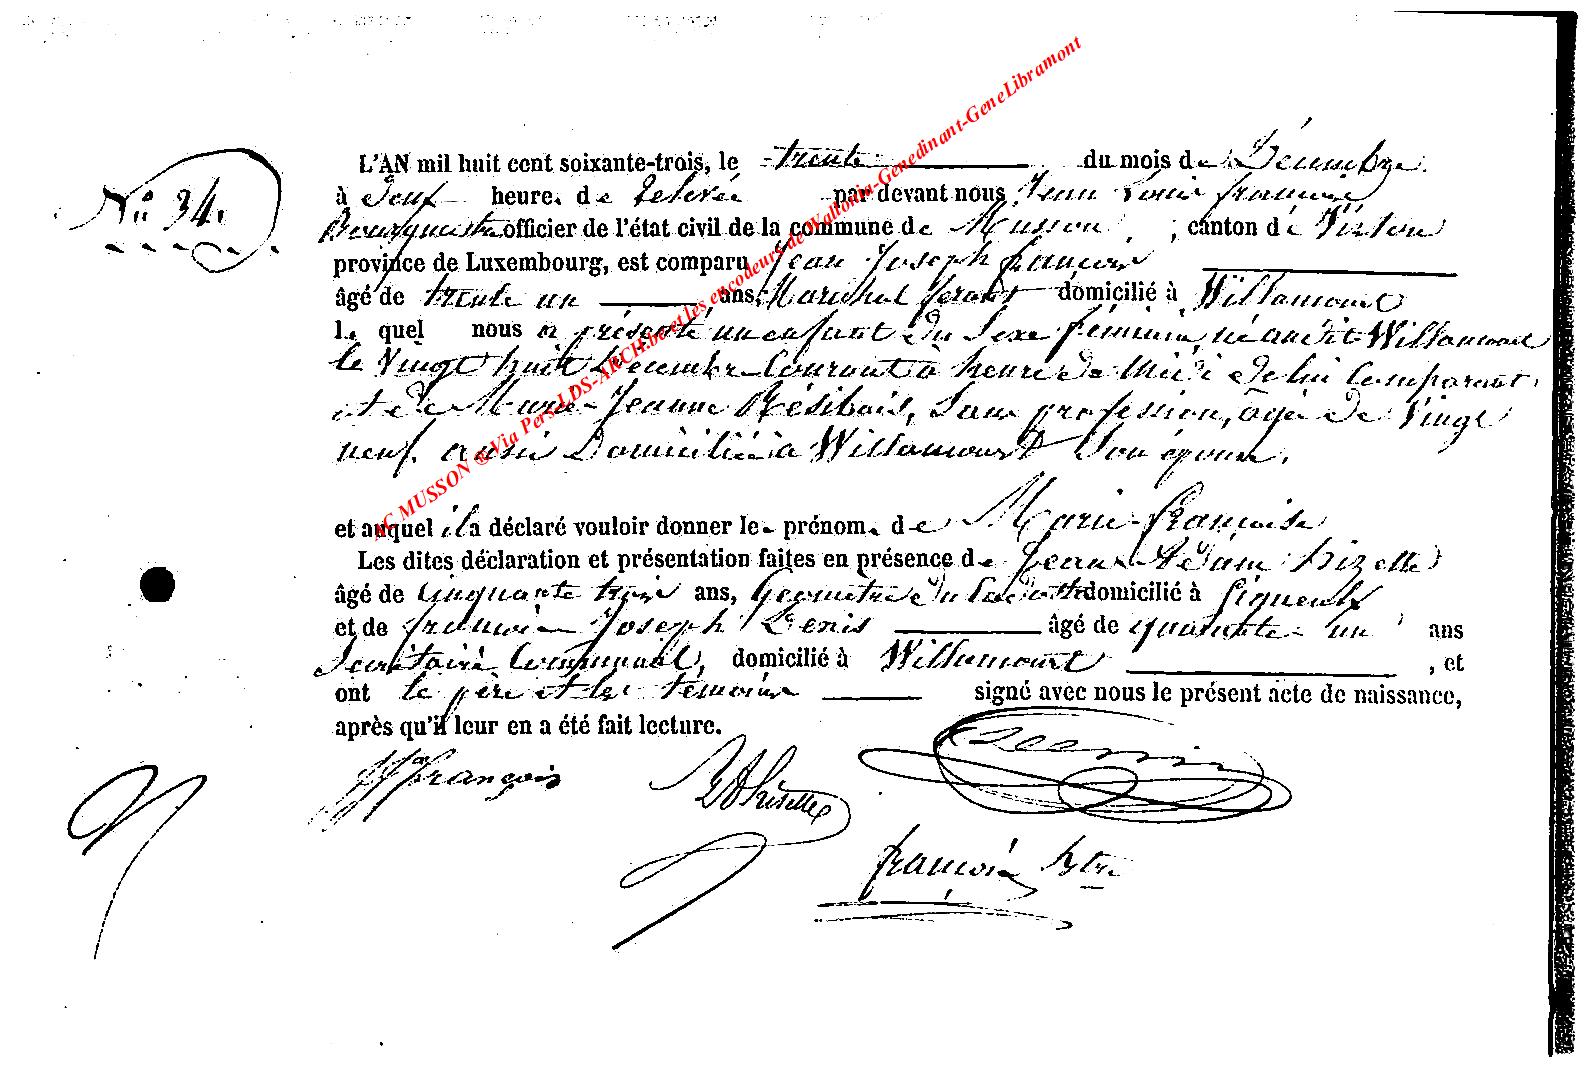 L'AN mil huit cent soixante-trois, le trente du mois de Décembre
N° 34.
à Deux heures de relevée par devant nous Jean Louis françois
Bourgmestre officier de l'état civil de la commune de Musson, canton de Virton
province de Luxembourg, est comparu Jean Joseph françois
âgé de trente un ans, Maréchal ferant domicilié à Willancourt
le quel nous a présenté un enfant du Sexe féminin, né audit Willancourt
le Vingt huit Décembre Courant à heure de Midi de lui Comparant
et de Marie-Jeanne Résibois, Sans profession, âgée de Vingt
neuf, aussi Domiciliée à Willancourt Son épouse.
et auquel il a déclaré vouloir donner le prénom de Marie-françoise
Les dites déclaration et présentation faites en présence de Jean Adam hizette
âgé de Cinquante trois ans, Géomètre du Cadastre domicilié à Signeulx
et de françois Joseph Denis âgé de quarante-un ans
Secrétaire Communal, domicilié à Willancourt, et
ont le père et les témoins signé avec nous le présent acte de naissance,
après qu'il leur en a été fait lecture.
JJ françois
françois bstre
AC MUSSON ®Via Pers-LDS-ARCH.be et les encodeurs de Wallonia-Genedinant-GeneLibramont